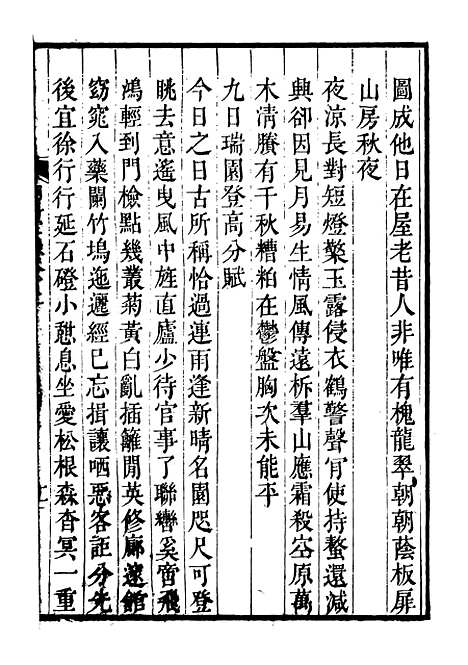 圖成他日在屋老昔人非唯有槐龍翠朝朝蔭板扉
山房秋夜
夜涼長對短燈檠玉露侵衣鶴警聲官使持螯還減
興卻因見月易生情風傳遠柝羣山應霜殺空原萬
木清賸有千秋糟粕在鬱盤胸次未能平
九日瑞園登高分賦
今日之日古所稱恰過連雨逢新晴名園咫尺可登
眺去意遙曳風中旌直廬少待官事了聯轡奚啻飛
鴻輕到門檢點幾叢菊黃白亂插籬閒英修廊邃館
窈窕入藥闌竹塢迤邐經已忘揖讓哂惡客詎分先
後宜徐行行延石磴小憩息坐愛松根森杳冥一重